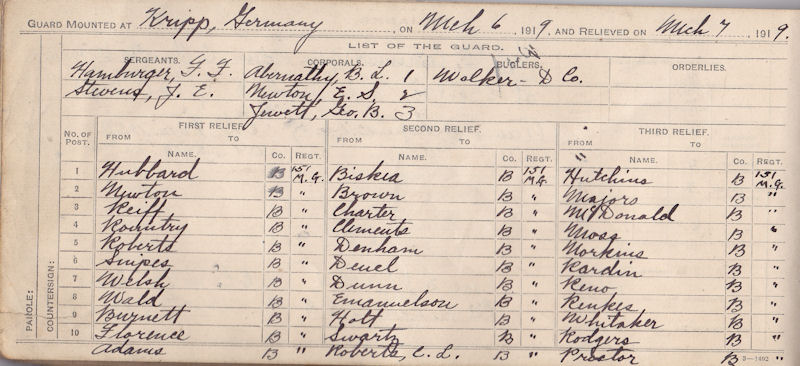 GUARD MOUNTED AT Kripp, Germany, ON Mch 6, 1919, AND RELIEVED ON Mch 7, 1919.
LIST OF THE GUARD.
SERGEANTS. CORPORALS. BUGLERS. ORDERLIES.
Hamburger, G. F. Abernathy, B. L. 1 Walker - D Co.
Stevens, J. E. Newton, E. S. 2
Jewett, Geo. B. 3
No. of Post. FIRST RELIEF. SECOND RELIEF. THIRD RELIEF.
FROM TO FROM TO FROM " TO
NAME. Co. REGT. NAME. Co. REGT. NAME. Co. REGT.
1 Hubbard B 151 M.G. Biskea B 151 M.G. Hutchins B 151 M.G.
2 Newton B " Brown B " Majors B "
3 Reiff B " Charter B " McDonald B "
4 Rountry B " Clements B " Moss B "
5 Roberts B " Denham B " Morkins B "
6 Snipes B " Deuel B " Rardin B "
7 Welsh B " Dunn B " Reno B "
8 Wald B " Emanuelson B " Renkes B "
9 Burnett B " Holt B " Whitaker B "
10 Florence B " Swartz B " Rodgers B "
Adams B " Roberts, C. L. B " Proctor B "
3—1402
PAROLE:
COUNTERSIGN: